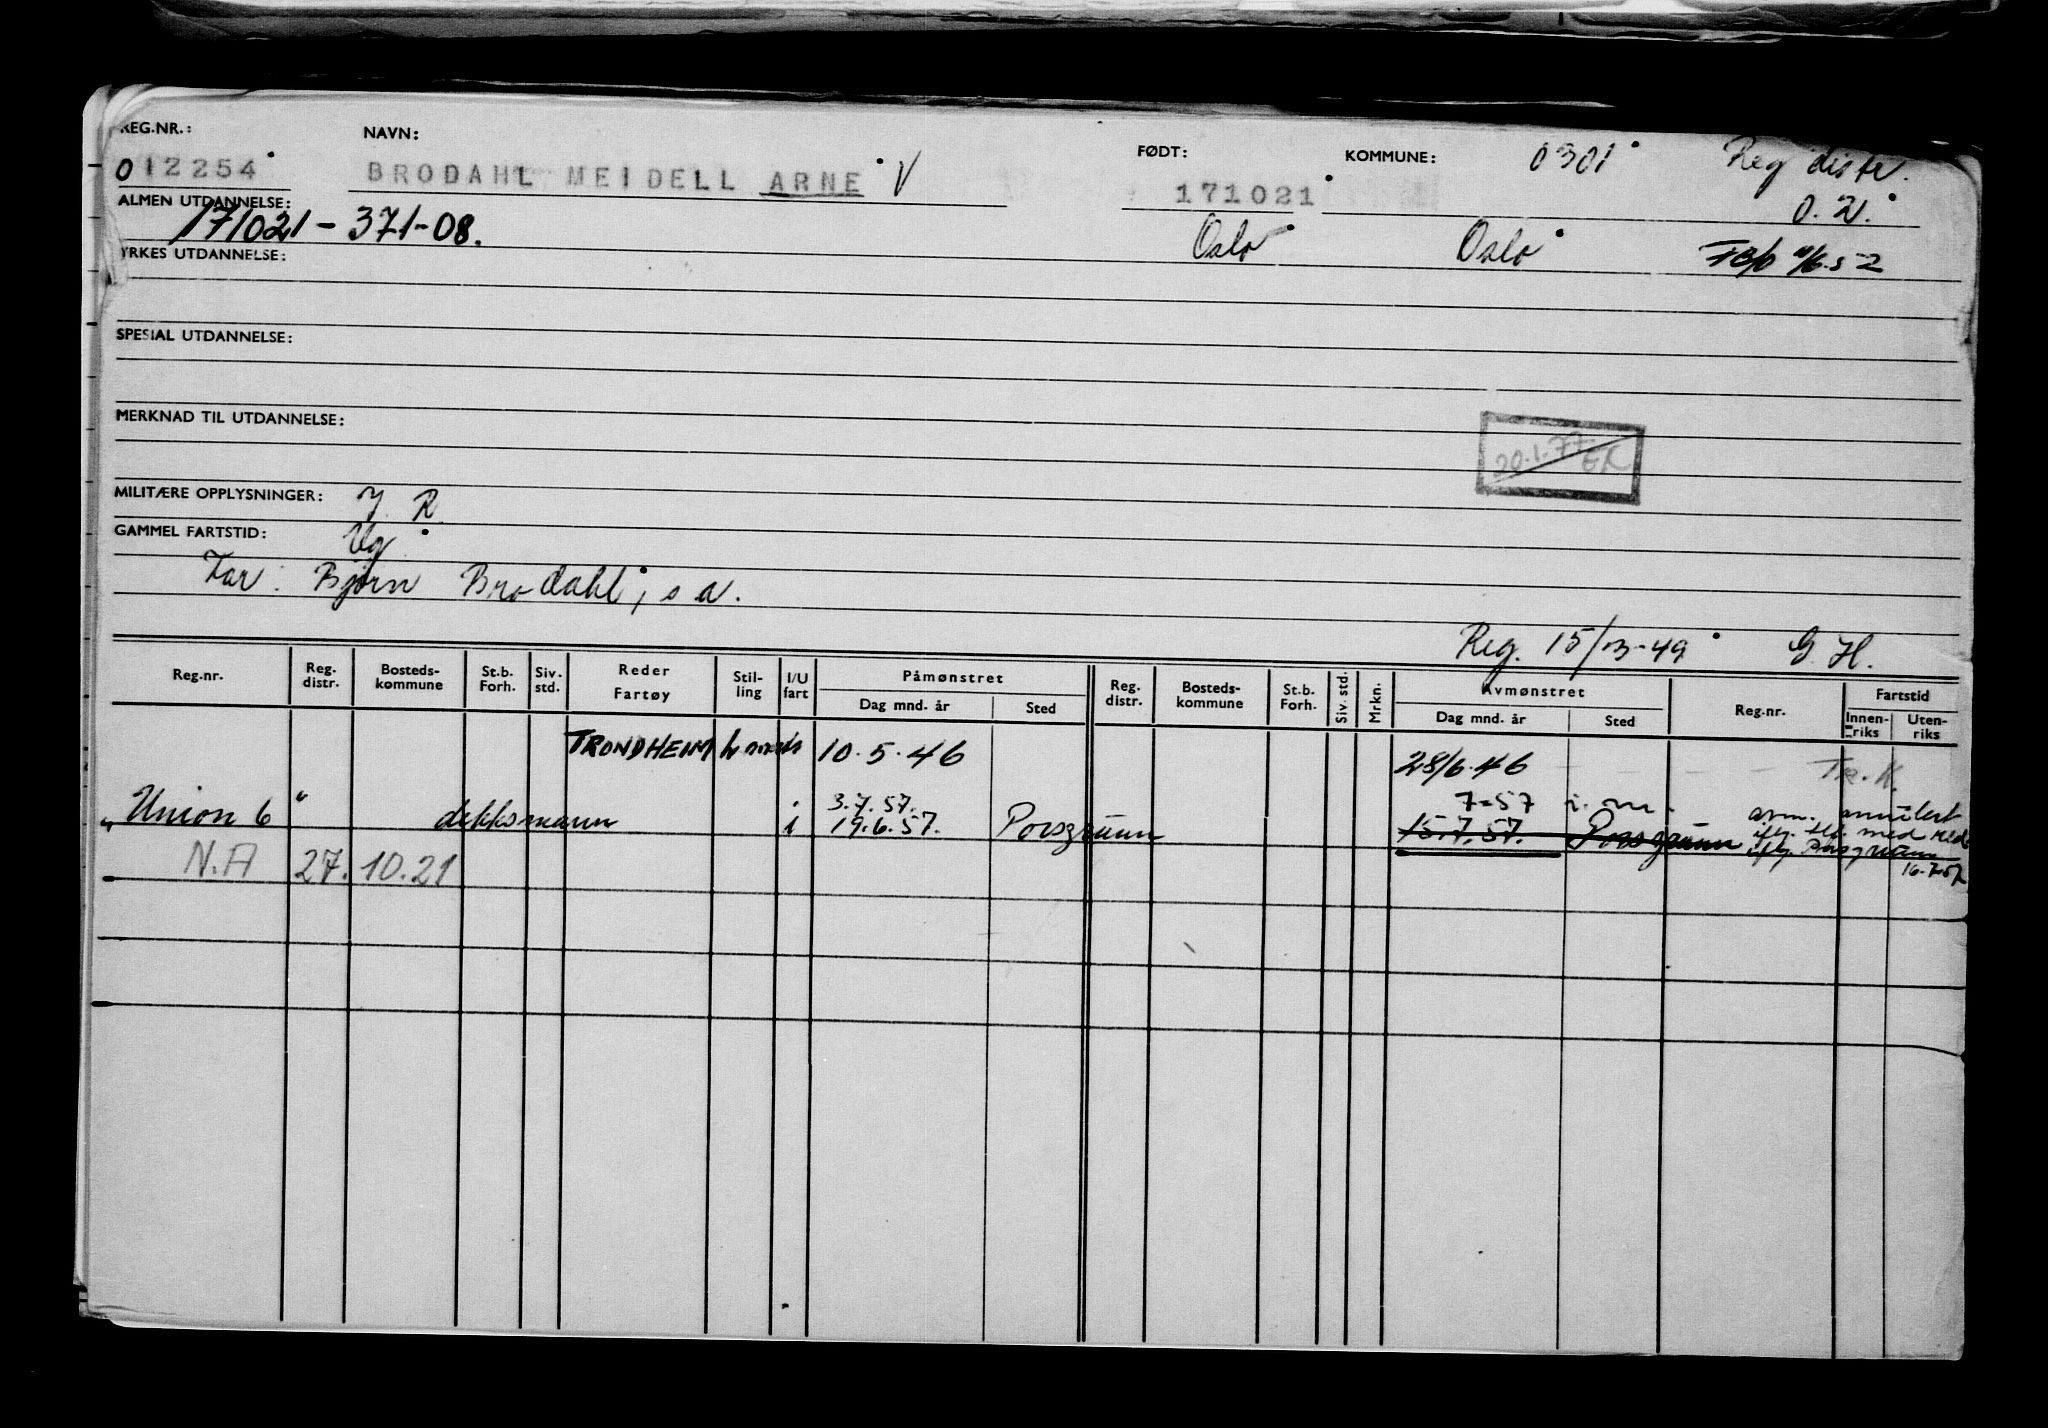 REG.NR.: NAVN: FØDT: KOMMUNE: 0301 Reg distr.
012254 BRODAHL MEIDELL ARNE V 171021 O.
ALMEN UTDANNELSE:
171021-371-08. Oslo Oslo
YRKES UTDANNELSE:
SPESIAL UTDANNELSE:
MERKNAD TIL UTDANNELSE:
20.1.77 EK
MILITÆRE OPPLYSNINGER: R.
GAMMEL FARTSTID:
Far: Bjørn Brodahl, s a.
Reg. 15/ 49 G. H.
Reg.nr. Reg. distr. Bosteds- kommune St.b. Forh. Siv. std. Reder Fartøy Stil- ling I/U fart Påmønstret Dag mnd. år Sted Reg. distr. Bosteds- kommune St.b. Forh. Siv. std. Mrkn. Avmønstret Dag mnd. år Sted Reg.nr. Fartstid Innen- riks Uten- riks
TRONDHEIM 10.5.46 28/6.46
3.7.57. 7-57
"Union 6" dekksmann i 19.6.57. Porsgrunn 15.7.57. Porsgrunn
N.A 27.10.21 16.7.57